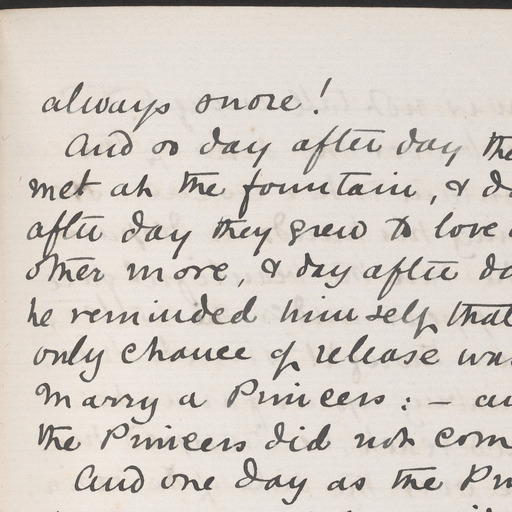 always snore!
And so day after day the
met at the fountain, & da
after day they grew to love
other more, & day after da
he reminded himself that
only chance of release was
marry a Princess: – an
the Princess did not com
And one day as the Pr